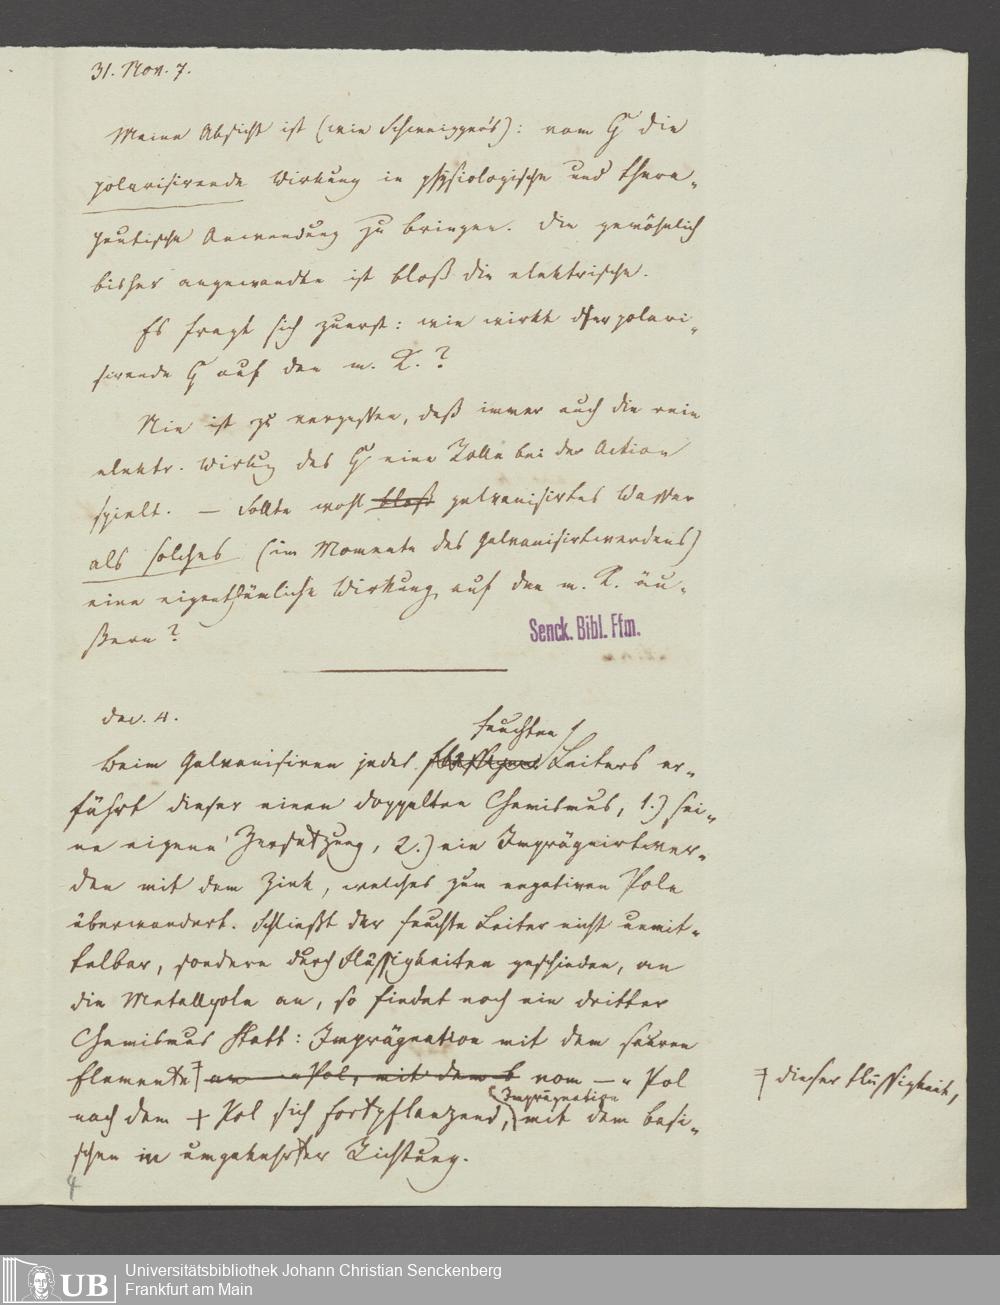 31. Nov. 7.
Meine Absicht ist (wie Schweiggers): vom G die
polarisirende Wirkung in physiologische und thera-
peutische Anwendung zu bringen. Die gewöhnlich
bisher angewandte ist bloß die elektrische.
Es fragt sich zuerst: wie wirkt der polari-
sirende G auf den m. K.?
Nie ist zu vergessen, daß immer auch die rein
elektr. Wirkug des G eine Rolle bei der Action
spielt. — Sollte wohl bloß galvanisirtes Wasser
als solches (im Momente des Galvanisirtwerdens)
eine eigenthümliche Wirkung auf den m. K. äu-
ßern?
Senck. Bibl. Ffm.
Dec. 4.
feuchten
Beim Galvanisiren jedes flüssigen Leiters er-
fährt dieser einen doppelten Chemismus, 1.) sei-
ne eigene Zersetzung, 2.) ein Imprägnirtwer-
den mit dem Zink, welches zum negativen Pole
überwandert. Schließt der feuchte Leiter nicht unmit-
telbar, sondern durch Flüssigkeiten geschieden, an
die Metallpole an, so findet noch ein dritter
Chemismus statt: Imprägnation mit dem sauren
Elemente an Pol, mit dem b vom — Pol
dieser Flüssigkeit,
Imprägnation
nach dem + Pol sich fortpflanzend, mit dem basi-
schen in umgekehrter Richtung.
4
UB
Universitätsbibliothek Johann Christian Senckenberg
Frankfurt am Main